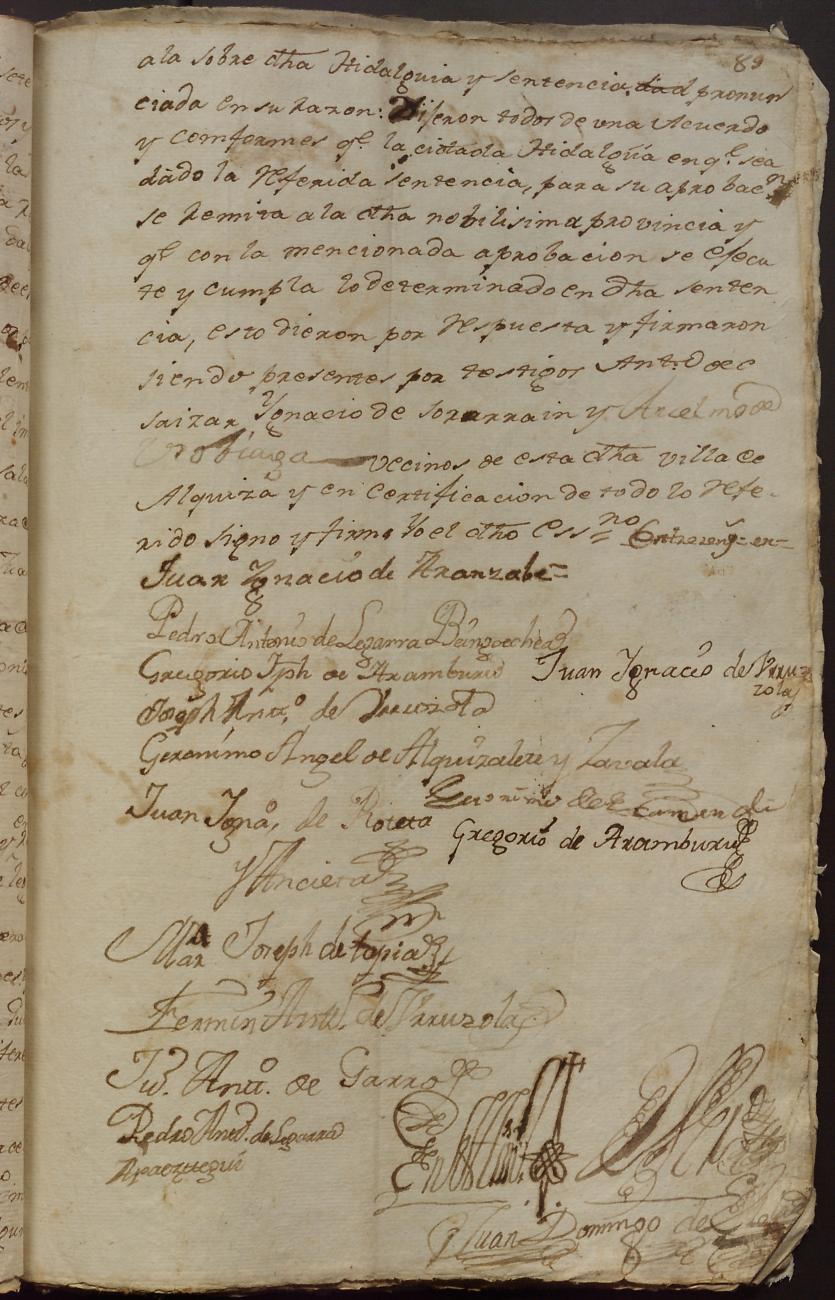 89
ala sobre dha Hidalguia y sentencia dad pronun
ciada en su razon: Dijeron todos de una Acuerdo
y comformes qe la citada Hidalguia en qe sea
dado la referida sentencia, para su aprobac
se remita ala dha nobilisima provincia y
qe con la mencionada aprobacion se efecu
te y cumpla lo determinado en dha senten
cia, esto dieron por respuesta y firmaron
siendo presentes por testigos Antt.o de
saizar Ygnacio de sorarrain y Ancelmo de
Urobiaga vecinos de esta dha villa de
Alquiza y en certificacion de todo lo refe-
rido signo y firme Yo el dho Essno Entrereng=en=
Juan Ygnacio de Aranzabe=
Pedro Antonio de Legarra Bengoechea
Gregorio Jph de Aramburu Juan Ignacio de Urru
zola
Joseph Antt.o de Urruzola
Geronimo Angel de Alquizalete y Zavala
Juan Igna.o de Roteta Geronimo de
Gregorio de Aramburu
y Ancieta
Mar Joseph de tapia
Fermin Antt. de Urruzola
Ju. Antt.o de Garro
Pedro Antt.o de Legarra
Apaeztegui
Juan Domingo de